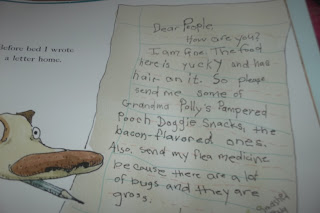 Before bed I wrote
a letter home.
Dear People,
How are you?
I am fine. The food
here is yucky and has
hair on it. So please
send me some of
Grandma Polly's Pampered
Pooch Doggie Snacks, the
bacon-flavored ones.
Also, send my flea medicine
because there are a lot
of bugs and they are
gross.